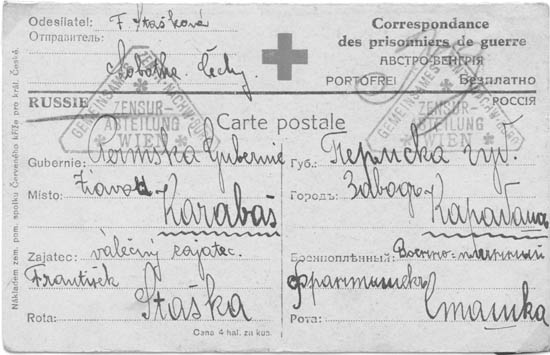 Odesílatel: F. Stašková
Отправитель:
Sobotka. Čechy.
Correspondance
des prisonniers de guerre
АВСТРО-ВЕНГРІЯ
PORTOFREI Безплатно
RUSSIE
РОССІЯ
GEMEINSAMES ZENTR.-NACHW.-BURO
ZENSUR-
ABTEILUNG
WIEN
GEMEINSAMES ZENTR.-NACHW.-BURO
ZENSUR-
ABTEILUNG
WIEN
Carte postale
Gubernie: Permska Gubernie
Místo: Závod
Karabaš
Zajatec: válečný zajatec.
František
Staška
Rota:
Cena 4 hal. za kus.
Губ.: Пермска губ.
Городъ: Заводъ
Карабашъ
Военноплѣнный: Военно-плѣнный
Франтишекъ
Сташка
Рота:
Nákladem zem. pom. spolku Červeného kříže pro král. České.